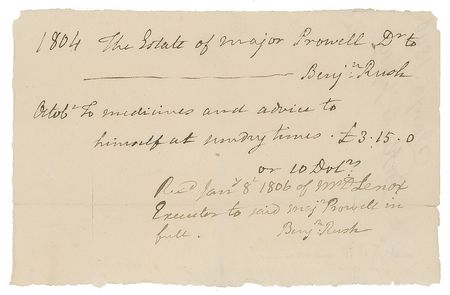 1804 The Estate of Major Prowell Dr to
Benjn Rush
Octobr To medicines and advice to
himself at sundry times . £3.15.0
or 10 Dolrs
Recd Jany 8t 1806 of Mr D Lenox
Executor to said Majr Prowell in
full. Benjn Rush